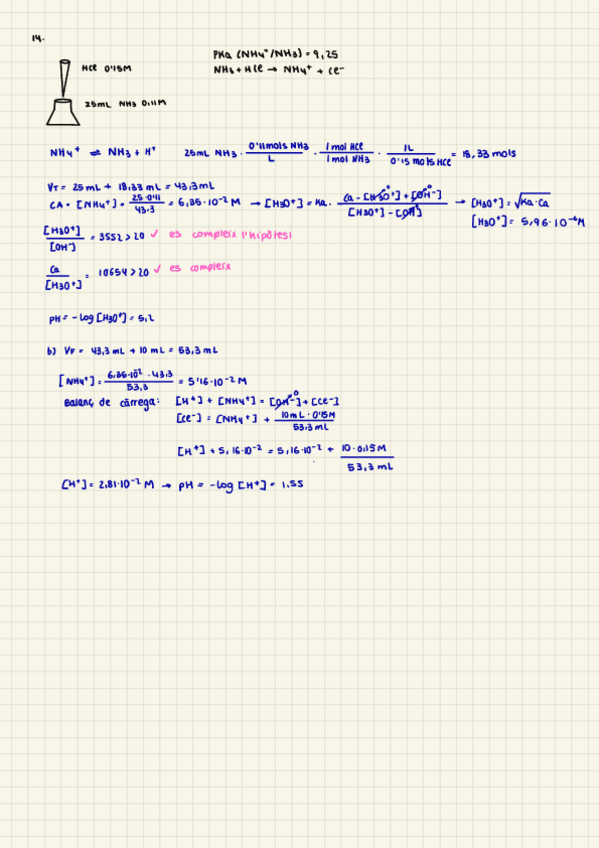 14.
HCl 0'15M
25mL NH3 0,11M
PKa (NH4+/NH3) = 9,25
NH3 + HCl → NH4+ + Cl-
NH4+ ⇌ NH3 + H+ 25mL NH3 · 0'11mols NH3/L · 1 mol HCl/1 mol NH3 · 1L/0'15 mols HCl = 18,33 mols
VT = 25 mL + 18,33 mL = 43,3mL
CA = [NH4+] = 25·0'11/43.3 = 6,35·10^-2 M → [H3O+] = Ka · Ca - [H3O+] + [OH-]/[H3O+] - [OH-] → [H3O+] = √Ka·Ca
[H3O+] = 5,96·10^-6 M
[H3O+]/[OH-] = 3552 > 20 ✓ es compleix l'hipòtesi
Ca/[H3O+] = 10654 > 20 ✓ es compleix
pH = -log [H3O+] = 5,2
b) VF = 43,3 mL + 10 mL = 53,3 mL
[NH4+] = 6,35·10^-2 · 43,3/53,3 = 5'16·10^-2 M
Balanç de càrrega: [H+] + [NH4+] = [OH-] + [Cl-]
[Cl-] = [NH4+] + 10mL · 0'15M/53,3 mL
[H+] + 5,16·10^-2 = 5,16·10^-2 + 10·0,15M/53,3 mL
[H+] = 2,81·10^-2 M → pH = -log [H+] = 1,55